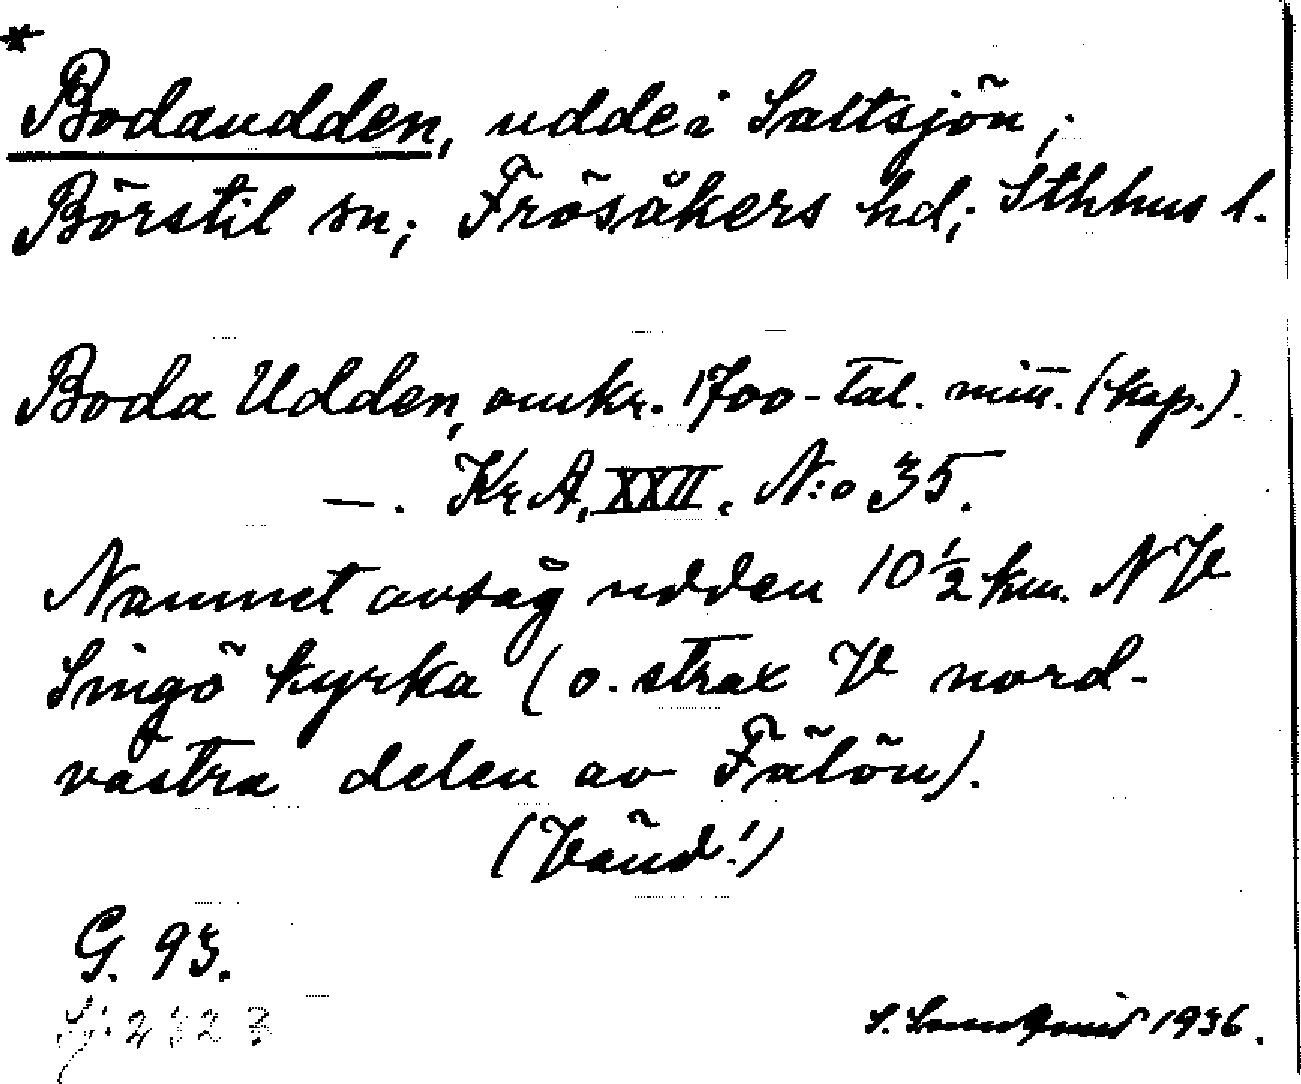 *
Bodaudden, udde i Saltsjön;
Börstil sn; Frösåkers hd; Sthhus l.
Boda Udden, omkr. 1700-tal. mitt. (kop.).
—. Kr A, XXII, N:o 35.
Namnet avsåg udden 10 1/2 km. NV
Singö kyrka (o. strax V nord-
västra delen av Fälön).
(Vänd!)
G. 93.
Sj.
S. 1936.